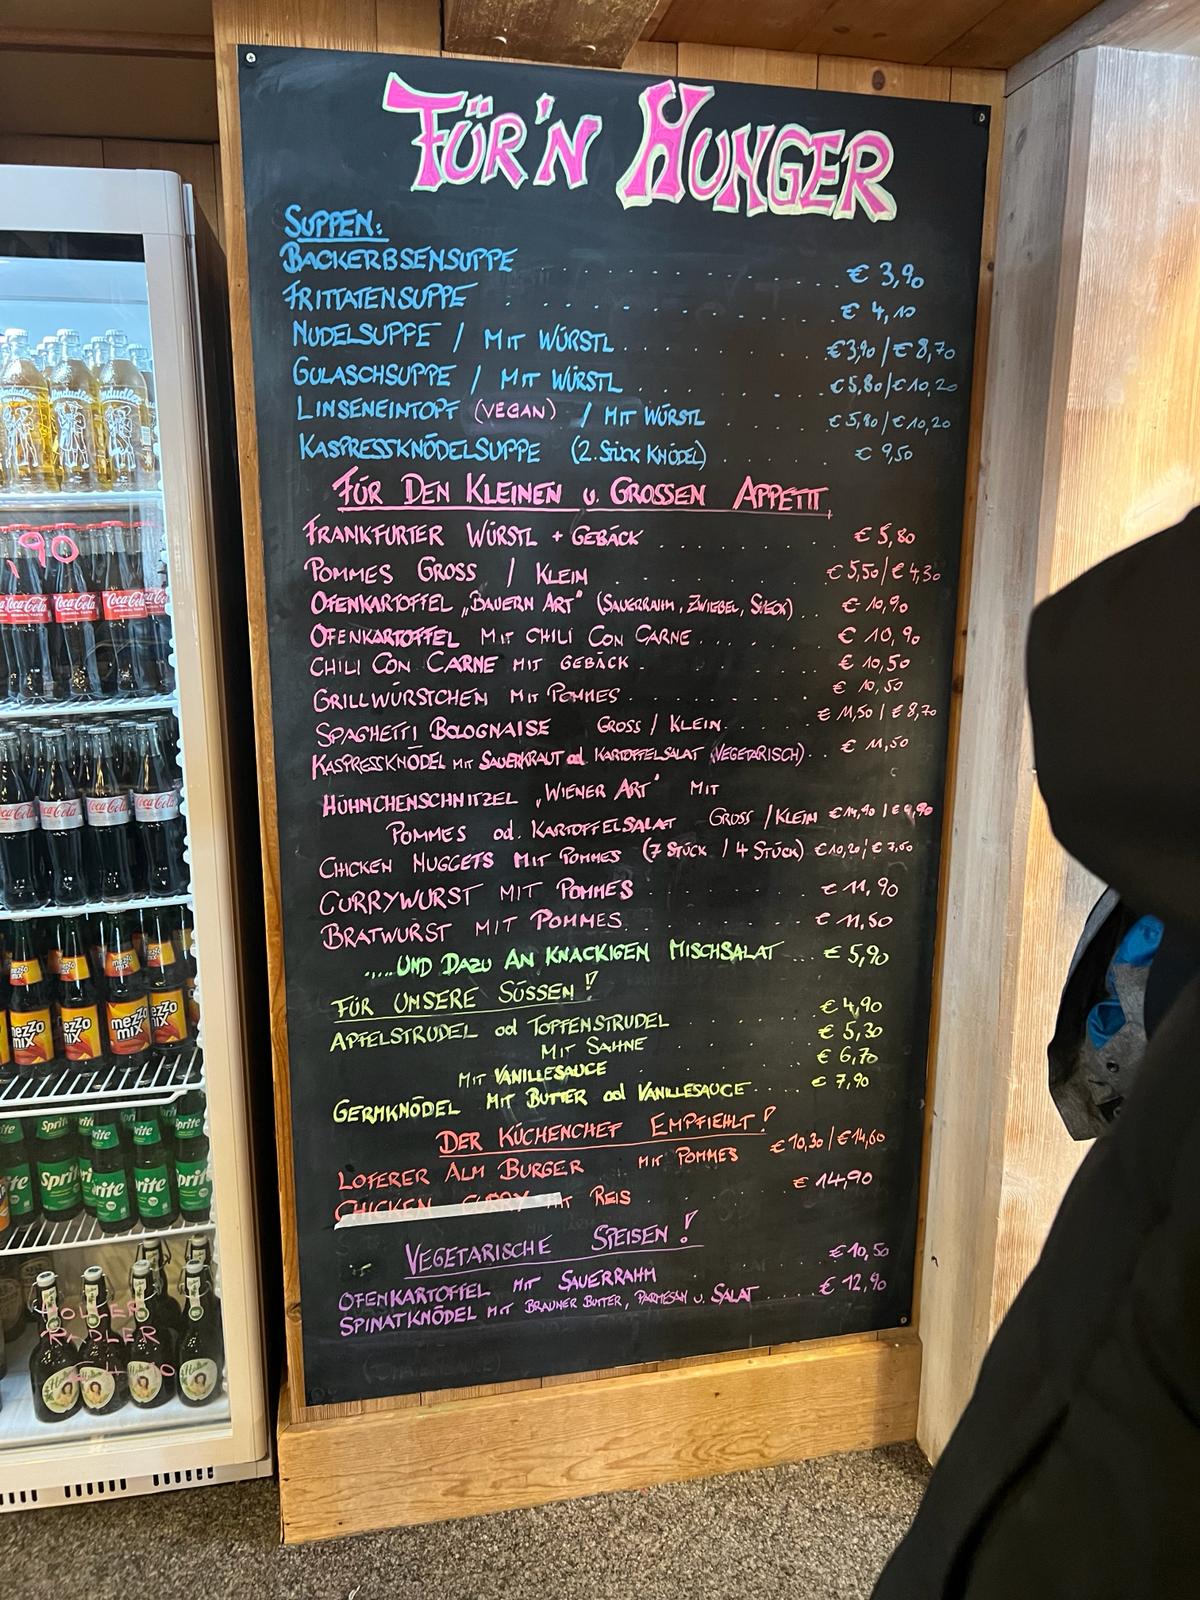 FÜR'N HUNGER
SUPPEN:
BACKERBSENSUPPE . . . . . . . . . . € 3,90
FRITTATENSUPPE . . . . . . . . . . € 4,10
NUDELSUPPE / MIT WÜRSTL . . . . . . . . € 3,90 / € 8,70
GULASCHSUPPE / MIT WÜRSTL . . . . . . . € 5,80 / € 10,20
LINSENEINTOPF (VEGAN) / MIT WÜRSTL . . . . € 5,80 / € 10,20
KASPRESSKNÖDELSUPPE (2. STÜCK KNÖDEL) . . . . € 9,50
FÜR DEN KLEINEN u. GROSSEN APPETIT
FRANKFURTER WÜRSTL + GEBÄCK . . . . . . € 5,80
POMMES GROSS / KLEIN . . . . . . . € 5,50 / € 4,30
OFENKARTOFFEL „BAUERN ART" (SAUERRAHM, ZWIEBEL, SPECK) . . € 10,90
OFENKARTOFFEL MIT CHILI CON CARNE . . . . € 10,90
CHILI CON CARNE MIT GEBÄCK . . . . . . € 10,50
GRILLWÜRSTCHEN MIT POMMES . . . . . . € 10,50
SPAGHETTI BOLOGNAISE GROSS / KLEIN . . . . € 11,50 / € 8,70
KASPRESSKNÖDEL MIT SAUERKRAUT od. KARTOFFELSALAT (VEGETARISCH) . . € 11,50
HÜHNCHENSCHNITZEL „WIENER ART" MIT
POMMES od. KARTOFFELSALAT GROSS / KLEIN € 14,90 /
CHICKEN NUGGETS MIT POMMES (7 STÜCK / 4 STÜCK) € 10,20 / € 7,60
CURRYWURST MIT POMMES . . . . . . € 11,90
BRATWURST MIT POMMES . . . . . . € 11,50
.....UND DAZU AN KNACKIGEN MISCHSALAT ... € 5,90
FÜR UNSERE SÜSSEN!
APFELSTRUDEL od TOPFENSTRUDEL . . . . . € 4,90
MIT SAHNE . . . . . € 5,30
MIT VANILLESAUCE . . . . . € 6,70
GERMKNÖDEL MIT BUTTER od VANILLESAUCE . . . . € 7,90
DER KÜCHENCHEF EMPFIEHLT!
LOFERER ALM BURGER MIT POMMES € 10,30 / € 14,60
CHICKEN CURRY MIT REIS . . . . . € 14,90
VEGETARISCHE SPEISEN!
OFENKARTOFFEL MIT SAUERRAHM . . . . . € 10,50
SPINATKNÖDEL MIT BRAUNER BUTTER, PARMESAN u. SALAT . . . . € 12,90
,90
Coca-Cola
Coca-Cola
mezzo mix
mezzo mix
Sprite
Sprite
RADLER